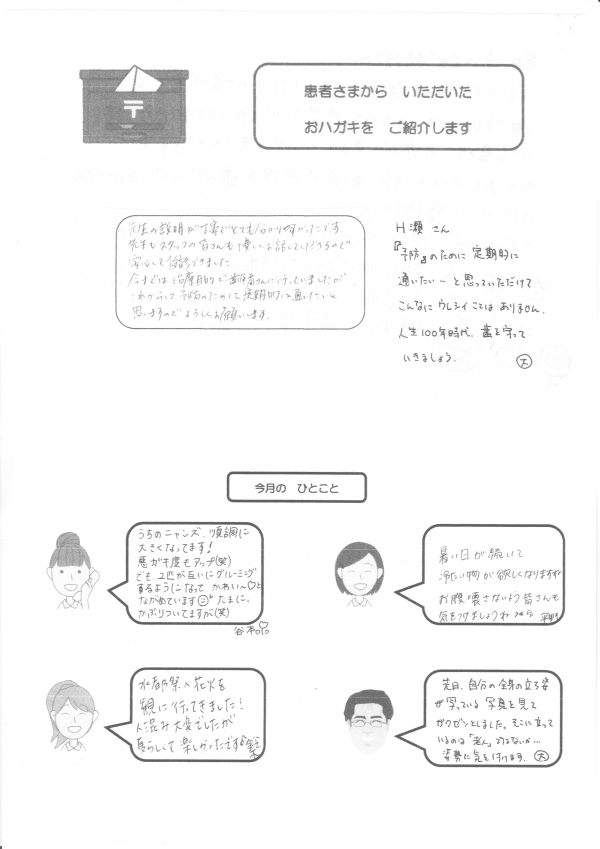 〒
患者さまから いただいた
おハガキを ご紹介します
先生の説明が丁寧でとても分かり易かったです
先生もスタッフの皆さんも優しくお話してくださるので
安心して受診できました
今までは治療目的で歯医者さんに行っていましたが
これからは予防のために定期的に通いたいと
思いますのでよろしくお願いします。
H瀬 さん
『予防』のために 定期的に
通いたい… と 思っていただけて
こんなに ウレシイ ことは ありません。
人生100年時代。歯を守って
いきましょう。 大
今月の ひとこと
うちのニャンズ、順調に
大きくなってます!
悪ガキ度もアップ(笑)
でも2匹が互いにグルーミング
するようになって、かわいい〜♡と
ながめています たまに、
かぶりついてますが(笑)
谷本
暑い日が続いて
冷たい物が欲しくなりますね
お腹壊さないよう皆さんも
気をつけましょうね
水都祭へ花火を
観に行ってきました!
人混み大変でしたが
素晴らしくて楽しかったです
先日、自分の全身の立る姿
が写っている写真を見て
ガクゼンとしました。そこに立って
いるのは「老人」ではないか…
姿勢に気を付けます。 大